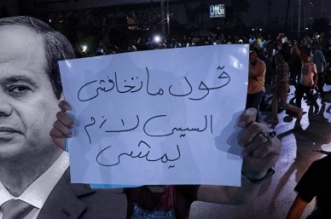 قول ماتخافشي
السيسي لازم
يمشي